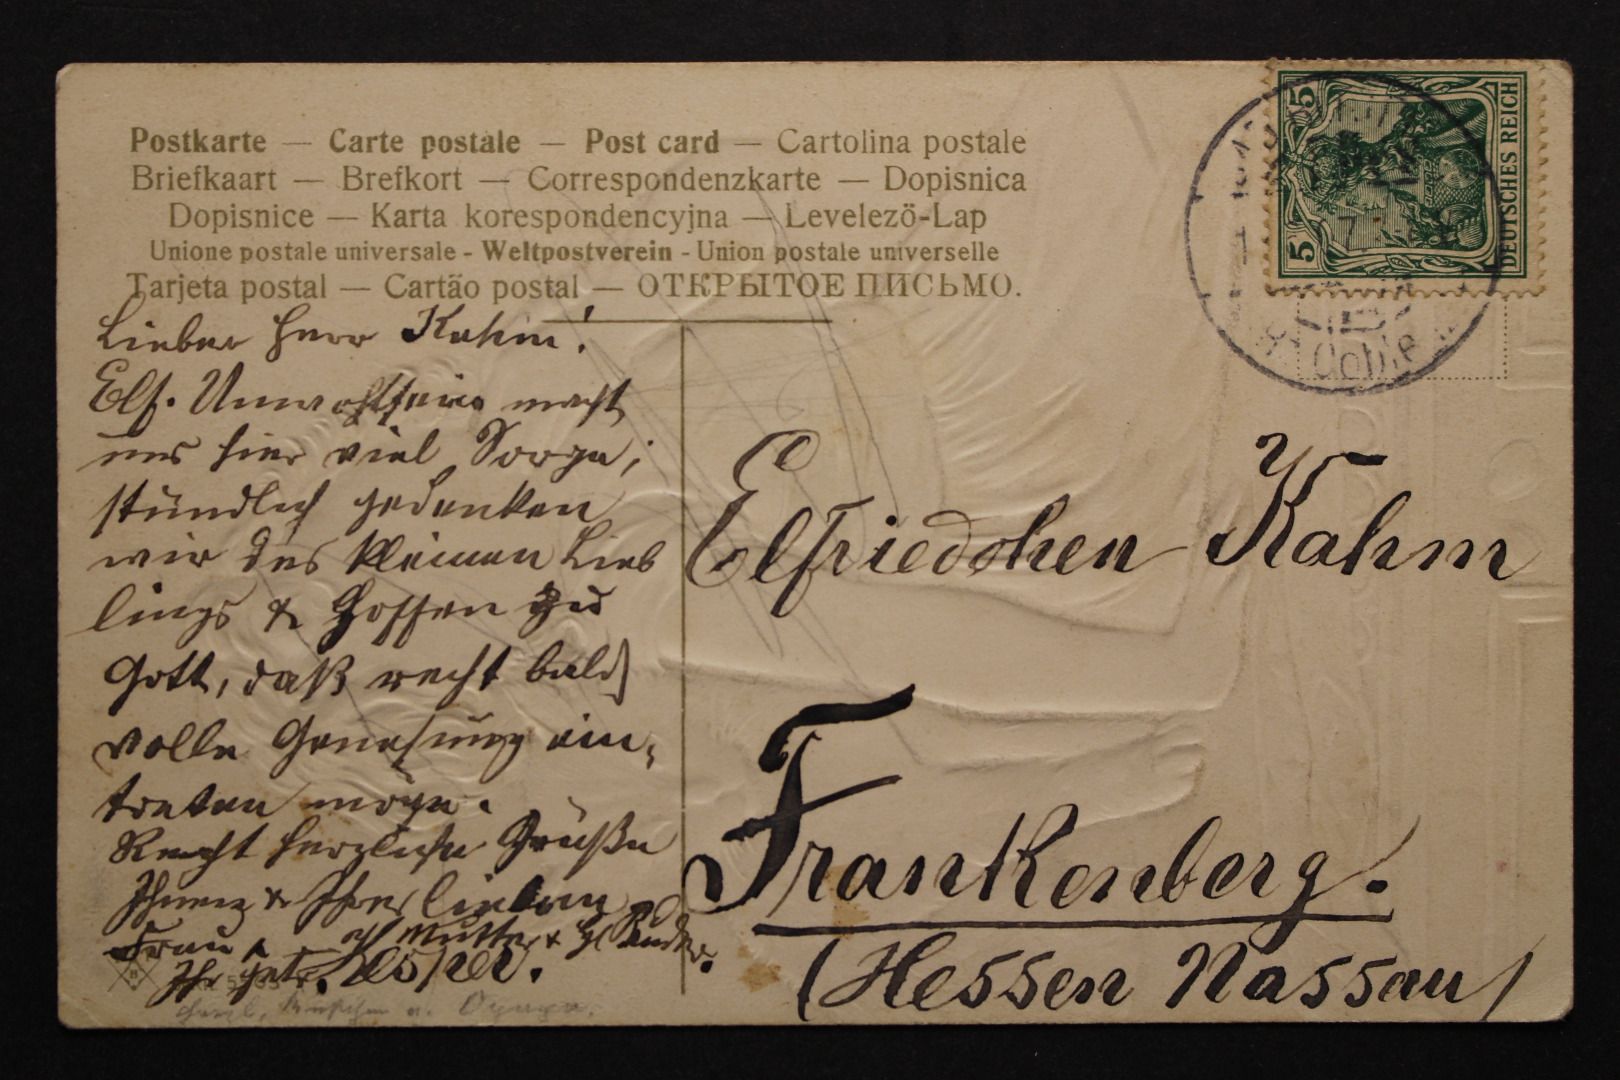 Postkarte — Carte postale — Post card — Cartolina postale
Briefkaart — Brefkort — Correspondenzkarte — Dopisnica
Dopisnice — Karta korespondencyjna — Levelezö-Lap
Unione postale universale - Weltpostverein - Union postale universelle
Tarjeta postal — Cartão postal — ОТКРЫТОЕ ПИСЬМО.
Lieber Herr Kahm!
Elf. Unwohlsein macht
uns hier viel Sorge;
stündlich gedenken
wir des kleinen Lieb
lings & hoffen zu
Gott, daß recht bald
volle Genesung ein-
treten möge.
Recht herzliche Grüße
Ihnen & Ihrer lieben
Frau Mutter & Kinder.
Ihr
5
5
DEUTSCHES REICH
Elfriedchen Kahm
Frankenberg.
(Hessen Nassau)